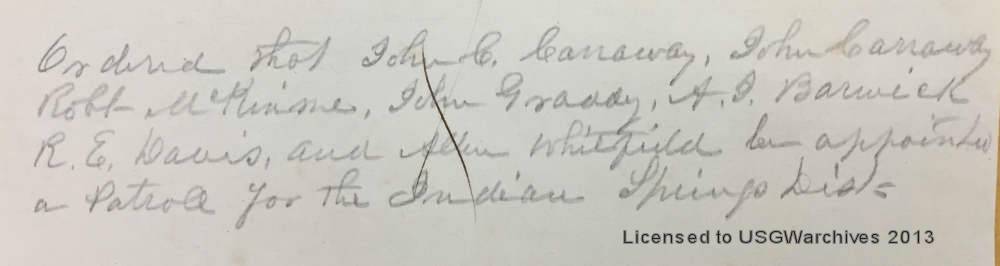 Ordered that John C. Carraway, John Carraway
Robt McKinne, John Grady, A. J. Barwick
R. E. Davis, and Allen Whitfield be appointed
a Patroll for the Indian Springs Dist
Licensed to USGWarchives 2013